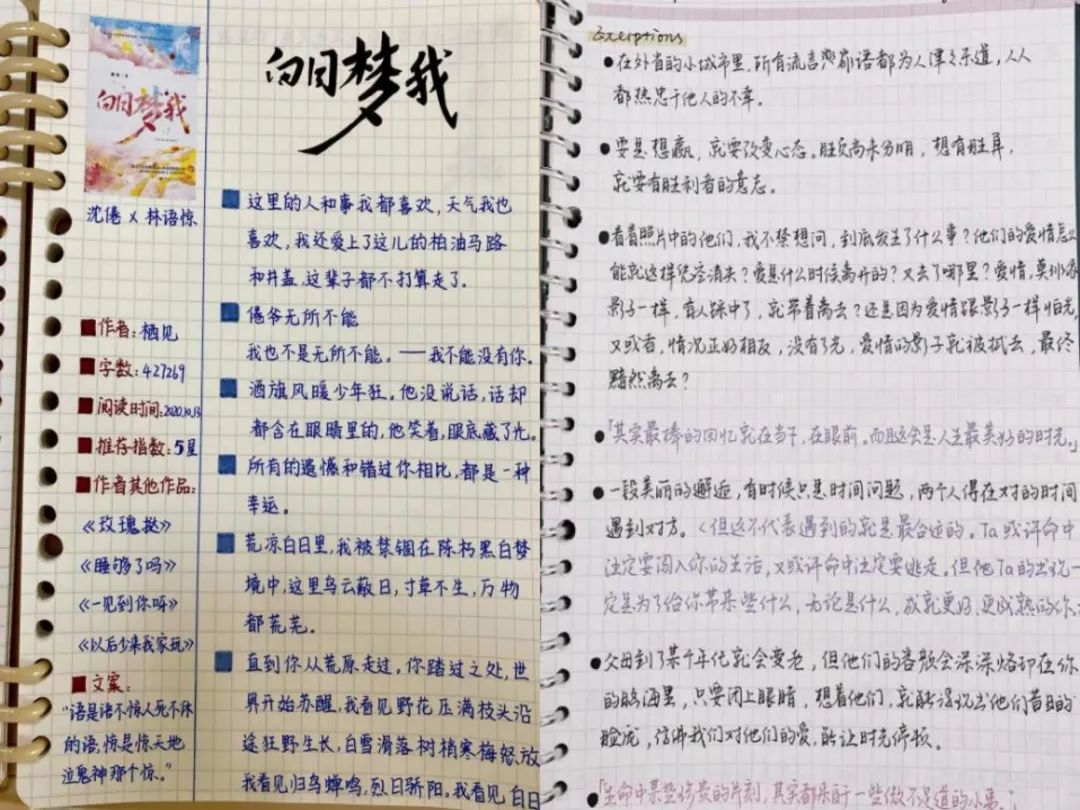 向日梦我
向日梦我
沈倦 x 林语惊
作者：栖见
字数：427269
阅读时间：2020.10.13
推荐指数：5星
作者其他作品：
《玫瑰挞》
《睡够了吗》
《一见到你呀》
《以后少来我家玩》
文案：
“语是语不惊人死不休
的语，惊是惊天地
泣鬼神那个惊。”
这里的人和事我都喜欢，天气我也
喜欢，我还爱上了这儿的柏油马路
和井盖，这辈子都不打算走了。
倦爷无所不能
我也不是无所不能。——我不能没有你。
酒旗风暖少年狂。他没说话，话却
都含在眼睛里的，他笑着，眼底藏了光。
所有的遗憾和错过你相比，都是一种
幸运。
荒凉白日里，我被禁锢在陈朽黑白梦
境中，这里乌云蔽日，寸草不生，万物
都荒芜。
直到你从荒原走过。你踏过之处，世
界开始苏醒，我看见野花压满枝头沿
途狂野生长，白雪滑落树梢寒梅怒放
我看见归鸟蝉鸣，烈日骄阳。我看见白日
Exerptions
在外省的小城市里，所有流言蜚语都为人津津乐道，人人
都热忠于他人的不幸。
要是想赢，就要改变心态。胜负尚未分明，想有胜算，
就要有胜利者的意志。
看着照片中的他们，我不禁想问，到底发生了什么事？他们的爱情怎么
能就这样凭空消失？爱是什么时候离开的？又去了哪里？爱情，莫非像
影子一样，有人踩中了，就带着离去？还是因为爱情跟影子一样怕光，
又或者，情况正好相反，没有了光，爱情的影子就被拭去，最终
黯然离去？
「其实最棒的回忆就在当下，在眼前。而且这会是人生最美好的时光。」
一段美丽的邂逅，有时候只是时间问题，两个人得在对的时间
遇到对方。〈但这不代表遇到的就是最合适的。Ta或许命中
注定要闯入你的生活，又或许命中注定要逃走。但他Ta的出现一
定是为了给你带来些什么，无论是什么，成就更好、更成熟的你。
父母到了某个年代就会变老，但他们的容颜会深深烙印在你
的脑海里，只要闭上眼睛，想着他们，就能浮现出他们昔日的
脸庞，仿佛我们对他们的爱，能让时光停顿。
「生命中某些珍贵的片刻，其实都来自于一些微不足道的小事。